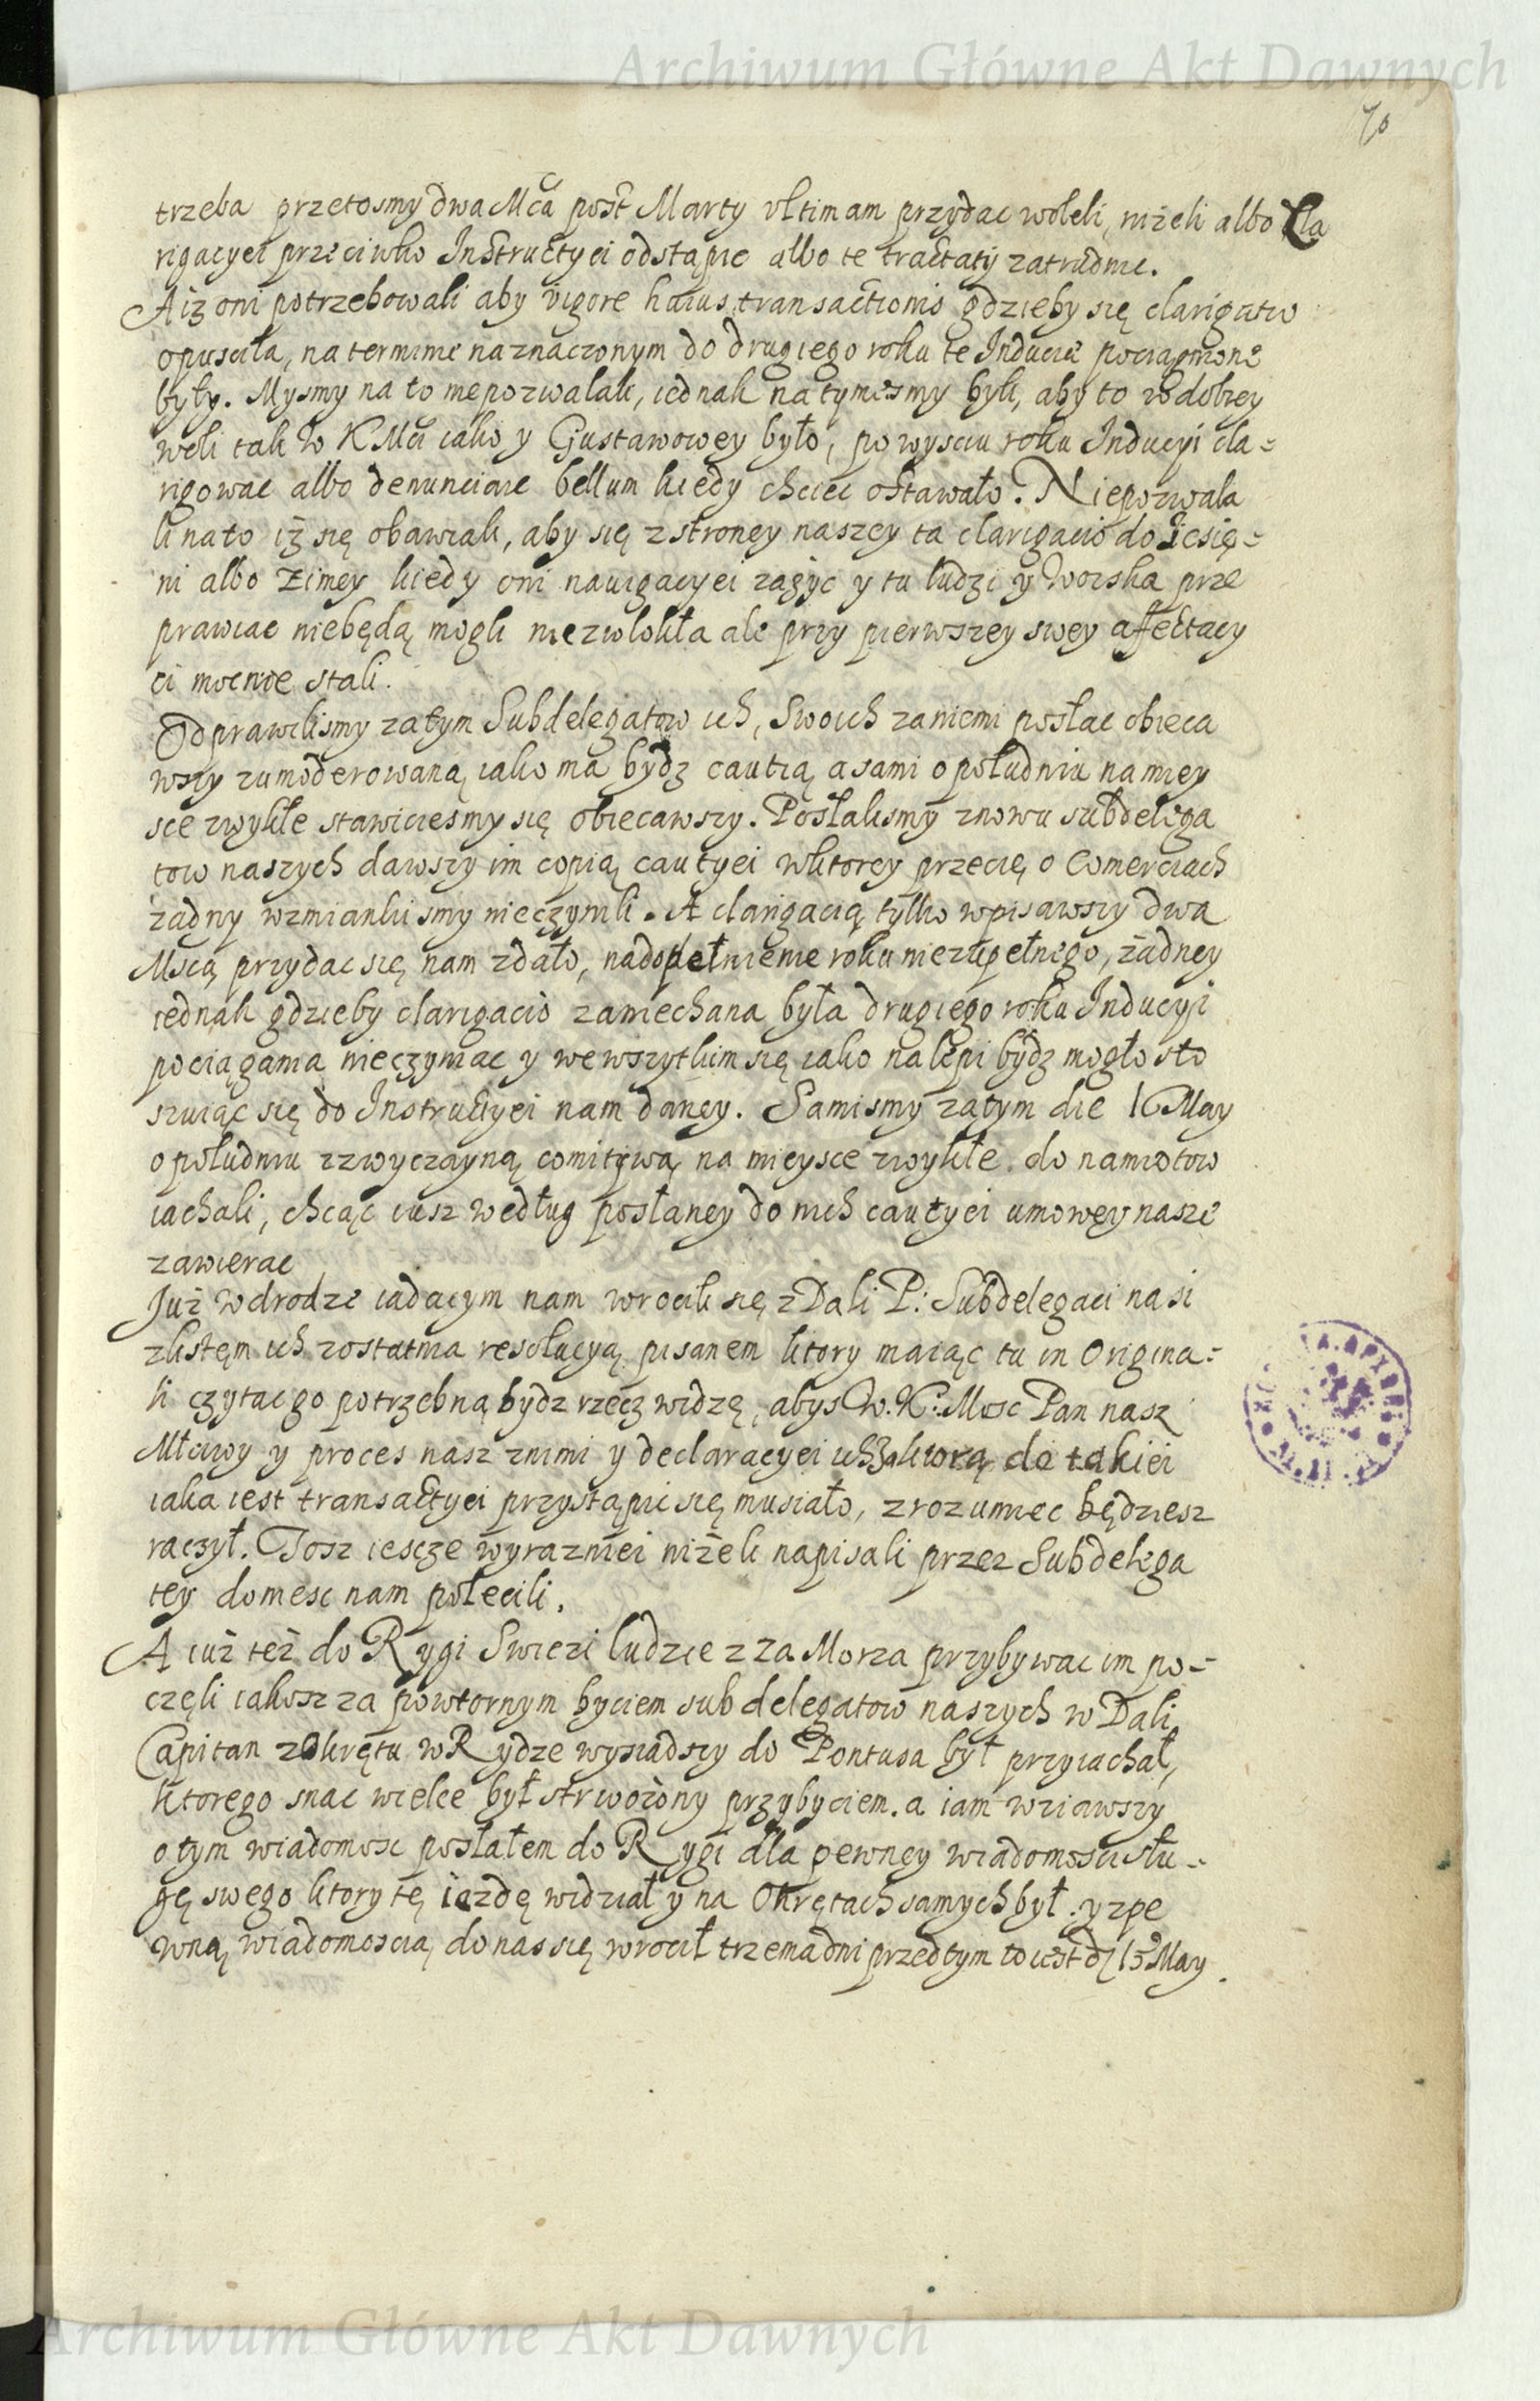 Archiwum Główne Akt Dawnych
70
trzeba przetosmy dwa Mca post Marty vltimam przydac woleli, niżeli albo Cla
rigacyei przeciwko Instructyei odstąpic albo te tractaty zatrudnic.
A iż oni potrzebowali aby vigore huius transactionis gdzieby się clarigatio
opusciła, na terminie naznaczonym do drugiego roku te Inducie pociągnione
były. Mysmy na to niepozwalali, iednak na tymesmy byli, aby to w dobrey
woli tak W KMci iako y Gustawowey było, po wysciu roku Inducyi cla-
rigowac albo denunciare bellum kiedy chciec ostawało. Niepozwala
li na to iż się obawiali, aby się z stroney naszey ta clarigacio do Iesię-
ni albo Zimey kiedy oni nauigacyei zażyc y tu ludzi y Woiska prze
prawiac niebędą mogli niezwlokła ale przy pierwszey swey affectacy
ei mocnie stali.
Odprawilismy zatym Subdelegatow ich, Swoich za niemi posłac obieca
wszy zumoderowaną iako ma bydz cautią a sami o południu na miey
sce zwykłe stawiciesmy się obiecawszy. Posłalismy znowu subdelega
tow naszych dawszy im copią cautyei wktorey przecię o Comerciach
żadny wzmianki smy nieczynili. A clarigacią tylko wpisawszy dwa
Mscą przydac się nam zdało, nadopełnienie roku niezupełnego, żadney
iednak gdzieby clarigacio zaniechana była drugiego roku Inducyi
pociągania nieczyniac y we wszytkim się iako nalepi bydz mogło sto
suiąc się do Instructyei nam daney. Samismy zatym die 16 May
o południu zzwyczayną comitywą na mieysce zwykłe do namiotow
iachali, chcąc iusz według posłaney do nich cautyei umowey nasze
zawierac
Już w drodze iadącym nam wrocili się z Dali P: Subdelegaci nasi
zlistem ich zostatnia resolucyą pisanem ktory maiąc tu in Origina-
li czytac go potrzebną bydz rzecz widzę, abys W. K: Mosc Pan nasz
Mławy y proces nasz znimi y declaracyei ich za ktorą do takiei
iaka iest transactyei przystąpic się musiało, zrozumiec będziesz
raczył. Tosz iescze wyrazniei niżeli napisali przez Subdelega
tey doniesc nam polecili.
A iuż też do Rygi Swiezi ludzie z za Morza przybywac im po-
częli iakosz za powtornym byciem subdelegatow naszych w Dali
Capitan z Okrętu w Rydze wysiadszy do Pontusa był przyiachał,
ktorego snac wielce był strwożony przybyciem. a iam wziawszy
o tym wiadomosc posłałem do Rygi dla pewney wiadomosci słu-
gę swego ktory tę iazdę widział y na Okrętach samych był. y zpe
wną wiadomoscią do nas się wrocił trzema dni przedtym to iest d 15 May.
Archiwum Główne Akt Dawnych